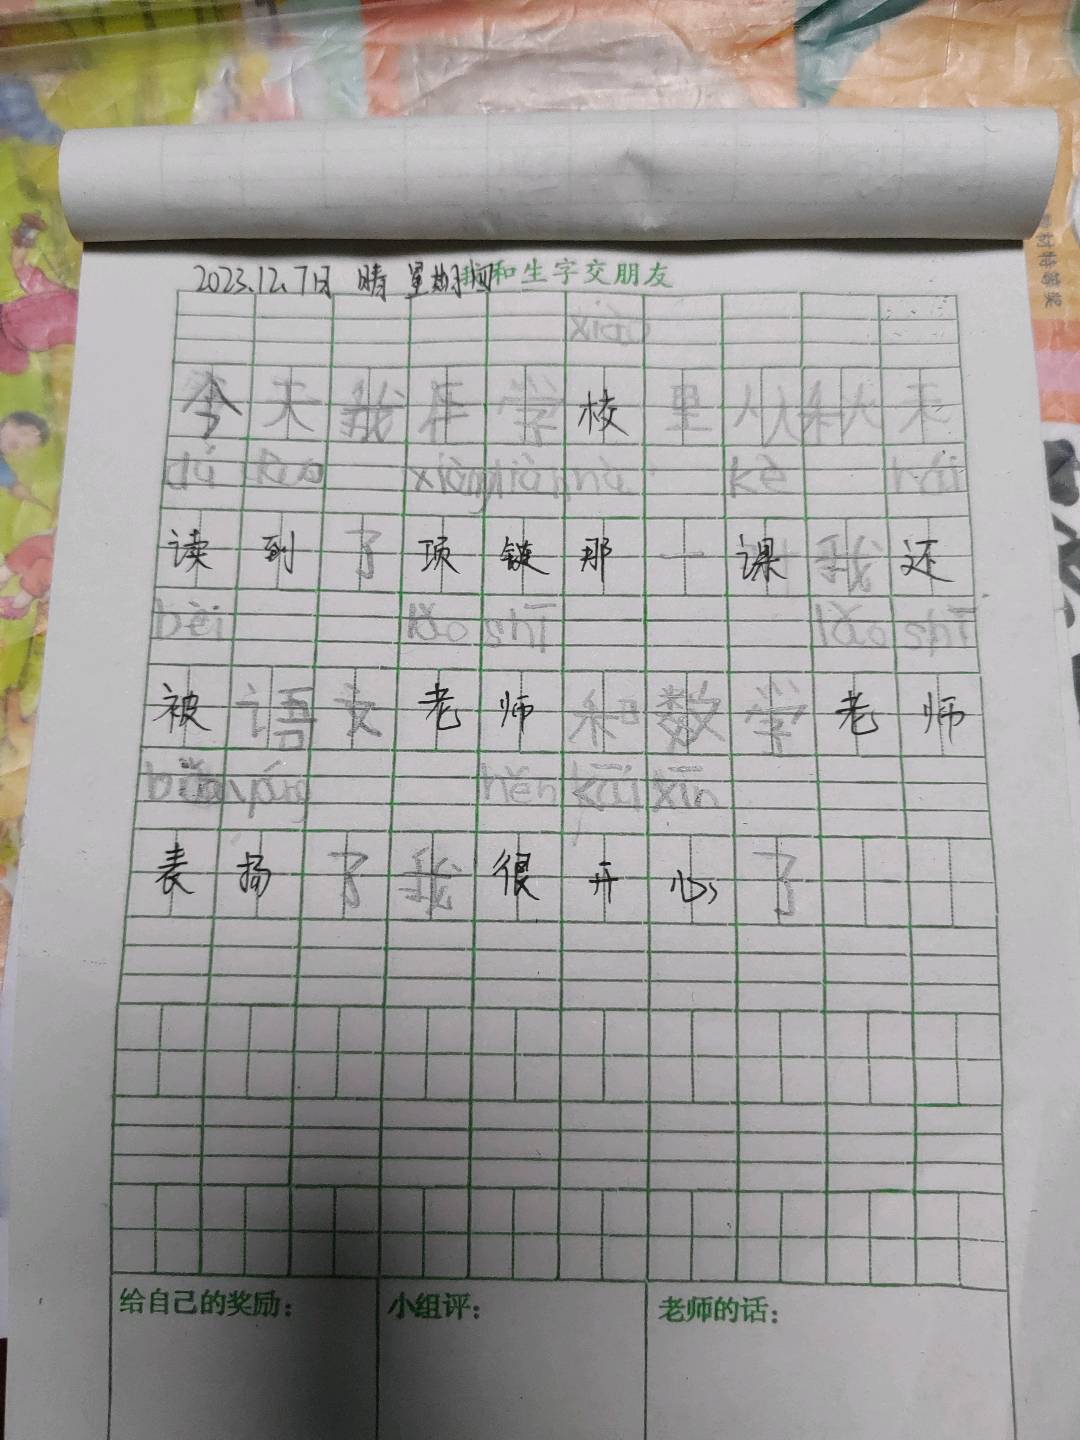 2023.12.7日 晴 星期四 我和生字交朋友
xiào
今天我在学校里从秋天
dú dao xiàng liàn nà kè hái
读到了项链那一课我还
bèi lǎo shī lǎo shī
被语文老师和数学老师
biǎo yáng hěn kāi xīn
表扬了我很开心了
给自己的奖励：
小组评：
老师的话：